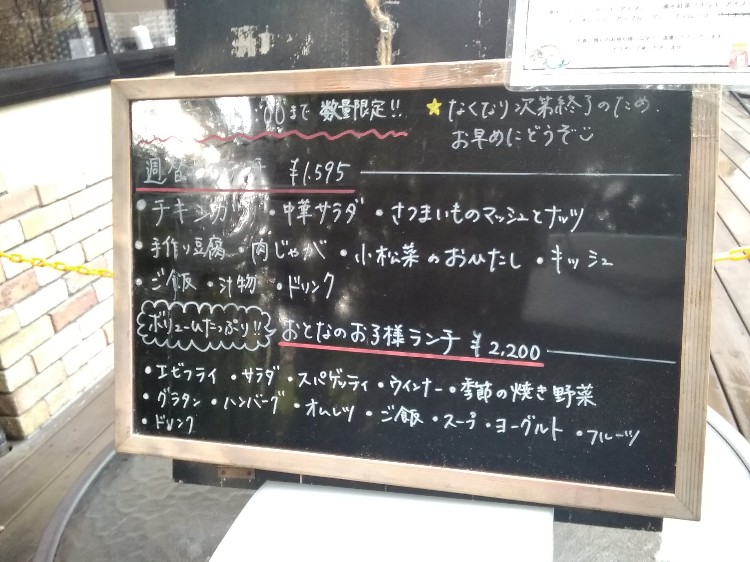 :00まで 数量限定!!
★なくなり次第終了のため
お早めにどうぞ
週替 ¥1.595
・チキン ・中華サラダ ・さつまいものマッシュとナッツ
・手作り豆腐 ・肉じゃが ・小松菜のおひたし ・キッシュ
・ご飯 ・汁物 ・ドリンク
ボリュームたっぷり!! おとなのお子様ランチ ¥2,200
・エビフライ ・サラダ ・スパゲッティ ・ウインナー ・季節の焼き野菜
・グラタン ・ハンバーグ ・オムレツ ・ご飯 ・スープ ・ヨーグルト ・フルーツ
・ドリンク